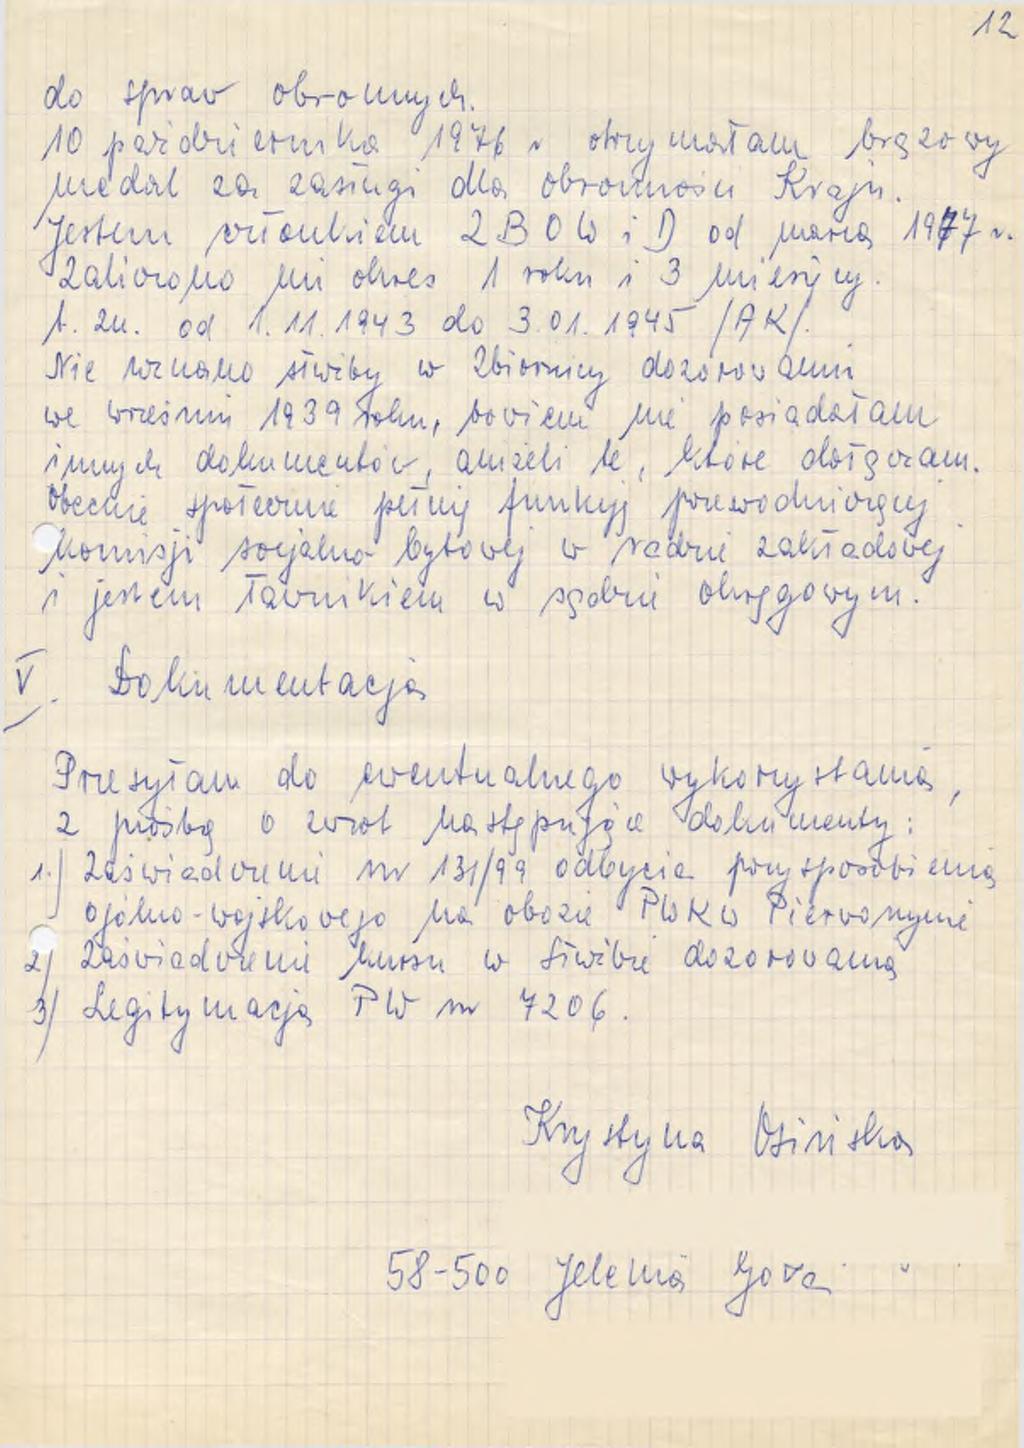 12
do spraw obronnych.
10 października 1976 r otrzymałam brązowy
medal za zasługi dla obronności Kraju.
Jestem członkiem ZBOWiD od marca 1977 r.
Zaliczono mi okres 1 roku i 3 miesięcy.
t. zn. od 1.11.1943 do 3.01.1945 /AK/.
Nie uznano służby w Zbiornicy dozorowania
we wrześniu 1939 roku, bowiem nie posiadałam
innych dokumentów, aniżeli te, które dołączam.
Obecnie społecznie pełnię funkcję przewodniczącej
Komisji socjalno bytowej w radzie zakładowej
i jestem ławnikiem w sądzie okręgowym.
V. Dokumentacja
Przesyłam do ewentualnego wykorzystania,
z prośbą o zwrot następujące dokumenty:
1.) Zaświadczenie nr 131/99 odbycia przysposobienia
ogólno-wojskowego na obozie PWK w Pierwoszynie
2) Zaświadczenie kursu w służbie dozorowania
3) Legitymacja PW nr 7206.
Krystyna Osińska
58-500 Jelenia Góra